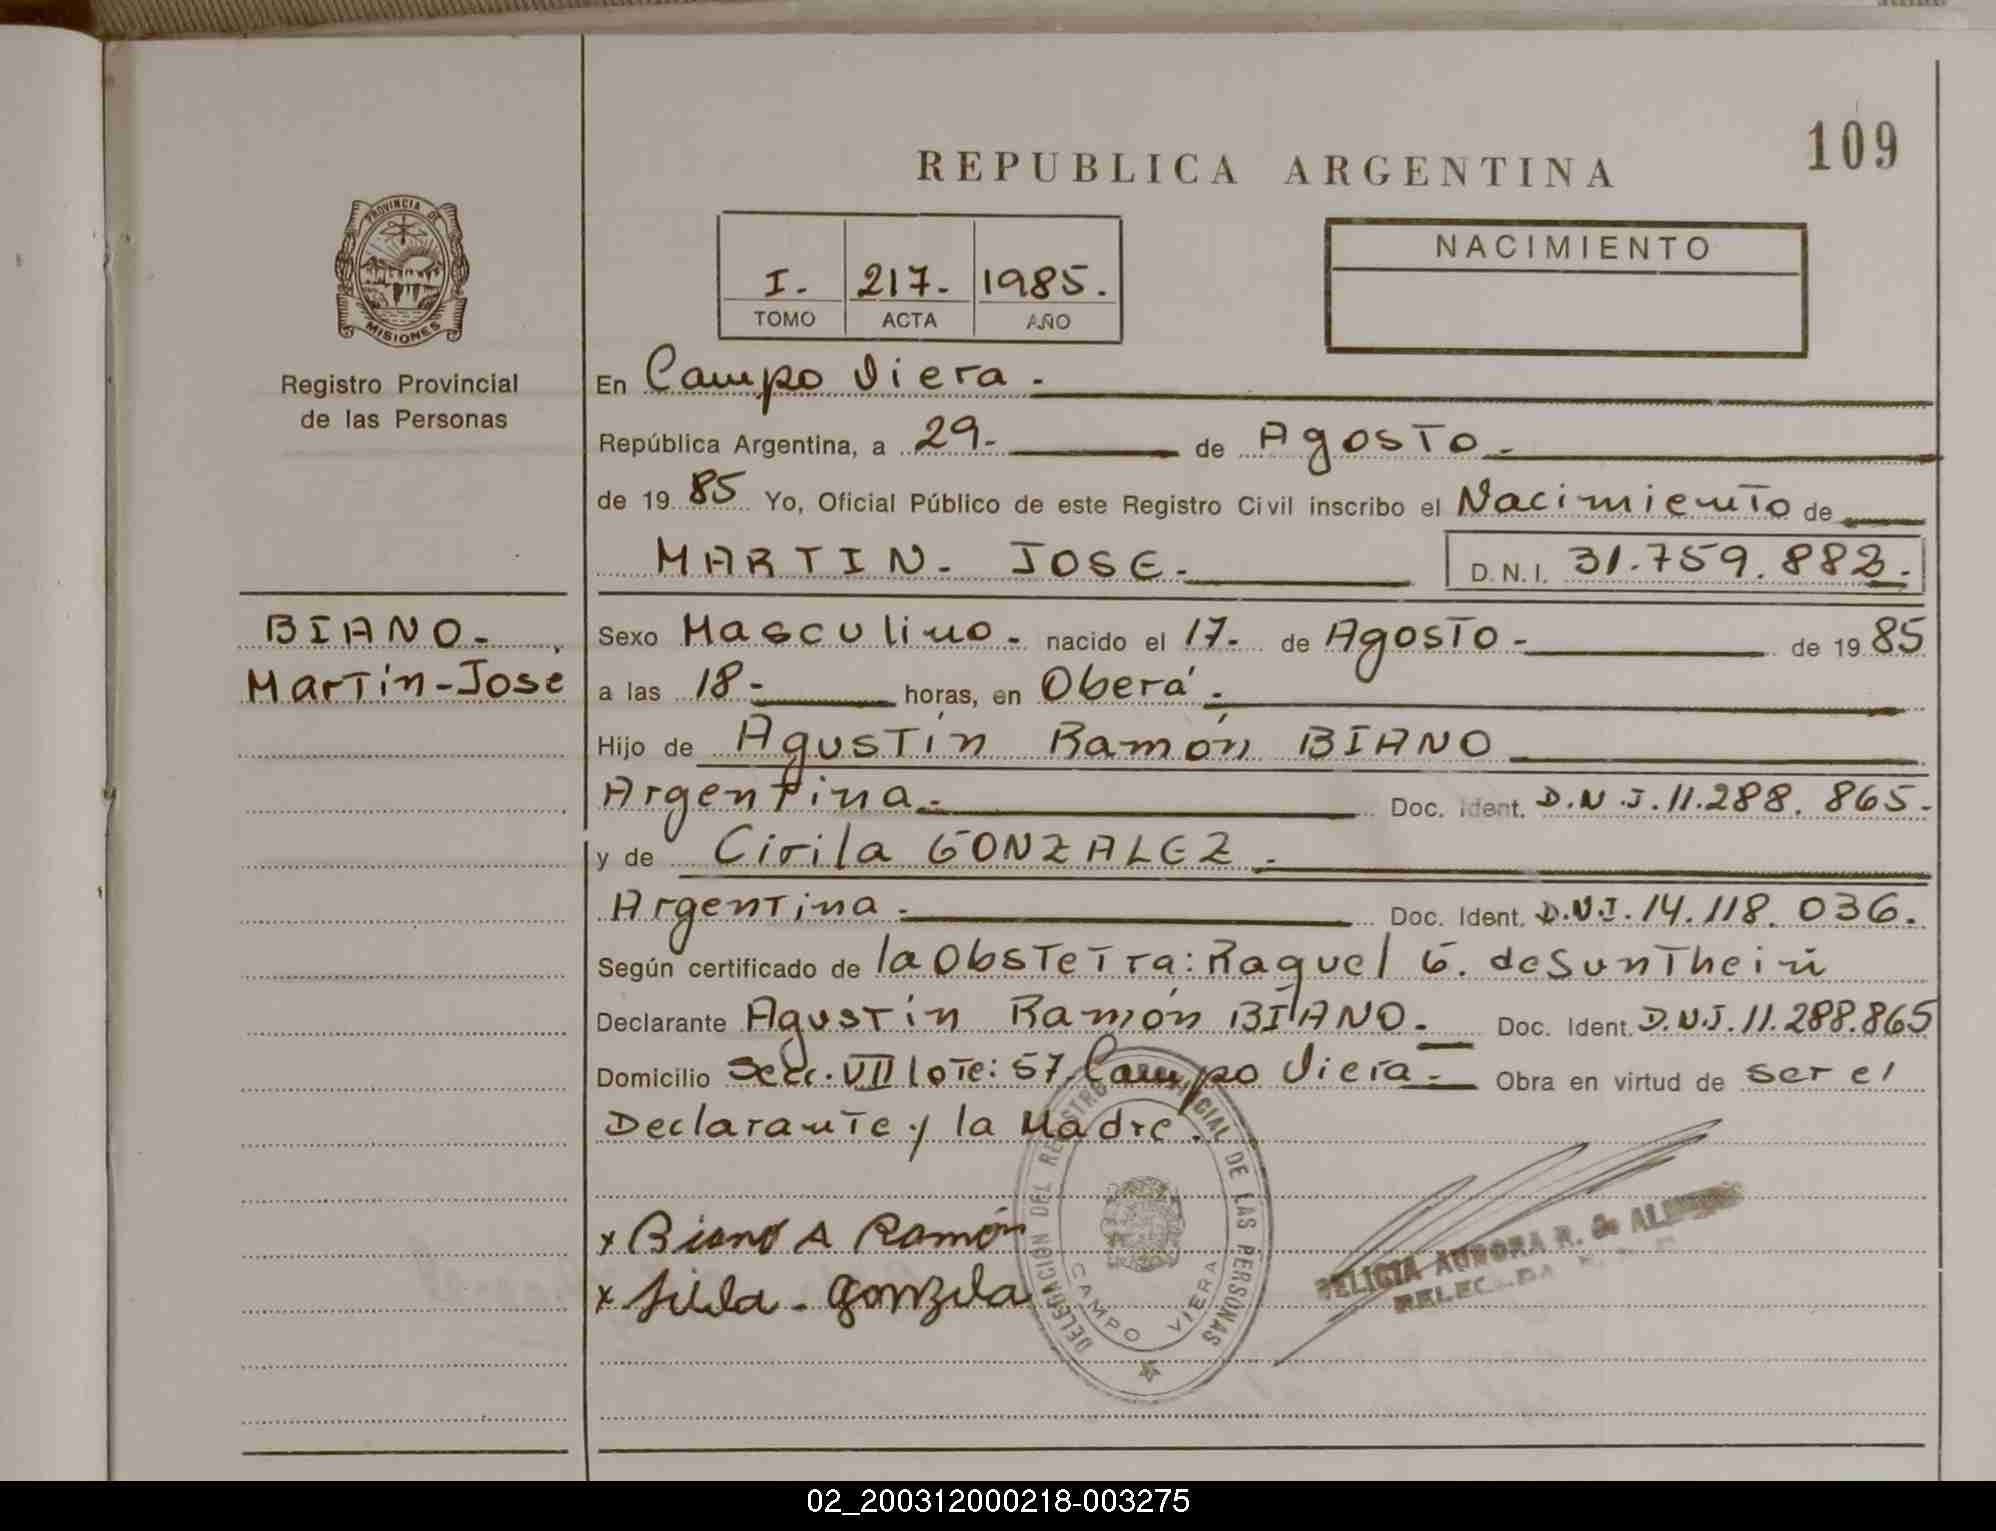 109
REPUBLICA ARGENTINA
PROVINCIA DE
MISIONES
Registro Provincial
de las Personas
I. 217. 1985.
TOMO ACTA AÑO
NACIMIENTO
En Campo Viera.
República Argentina, a 29. de Agosto.
de 19 85 Yo, Oficial Público de este Registro Civil inscribo el Nacimiento de
MARTIN. JOSE. D.N.I. 31.759.882.
BIANO.
Martín-José
Sexo Masculino. nacido el 17. de Agosto. de 19 85
a las 18. horas, en Oberá.
Hijo de Agustín Ramón BIANO
Argentina. Doc. Ident. D.N.I. 11.288.865.
y de Cirila GONZALEZ.
Argentina. Doc. Ident. D.N.I. 14.118.036.
Según certificado de la Obstetra: Raquel G. de
Declarante Agustín Ramón BIANO. Doc. Ident. D.N.I. 11.288.865
Domicilio Secc. VII lote: 57 Campo Viera. Obra en virtud de ser el
Declarante y la Madre.
x Biano A Ramón
x
DELEGACION DEL REGISTRO PROVINCIAL DE LAS PERSONAS
CAMPO VIERA
FELICIA AURORA R. de
02_200312000218-003275